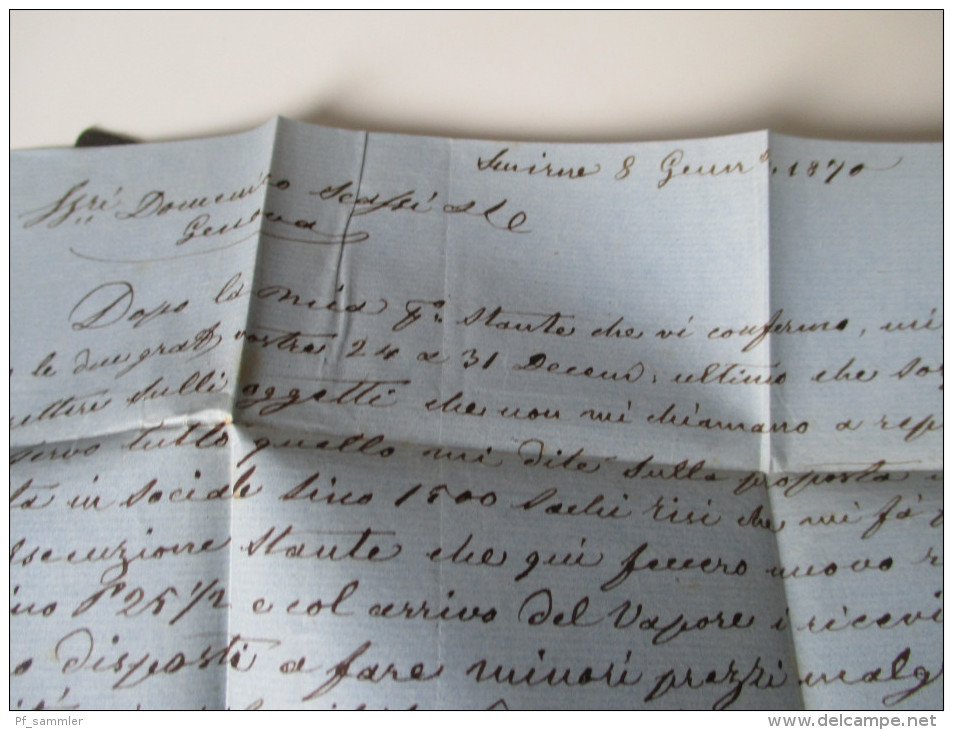 Smirne 8 Genn.º 1870
Ssri Domenico Scassi & C
Genova
Dopo la mia pº stante che vi confermo, mi
le due grad vostre 24 a 31 Decem. ultimo che
sulli oggetti che non mi chiamano a rep
servo tutto quallo mi dite sulla proposta
ta in sociale sino 1500 Sachi risi che mi fá
Esecuzione stante che quí fecero nuovo r
ino P 25 1/2 e col arrivo del Vapore i ricevi
o disposti a fare minori prezzi malg
Pf_sammler